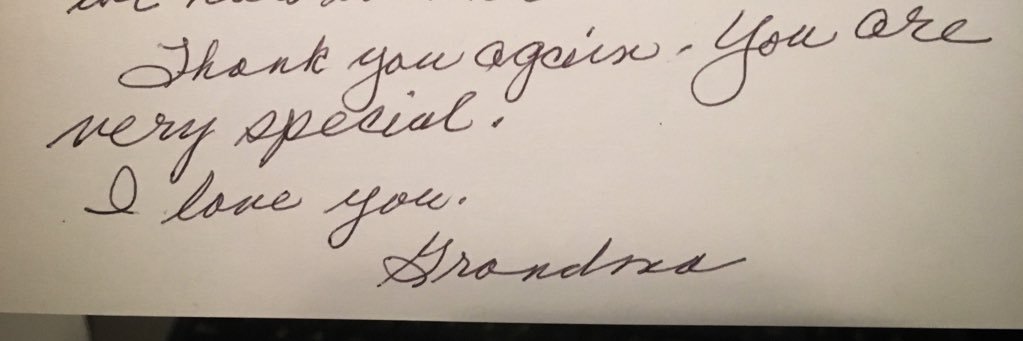 Thank you again. You are
very special.
I love you.
Grandma